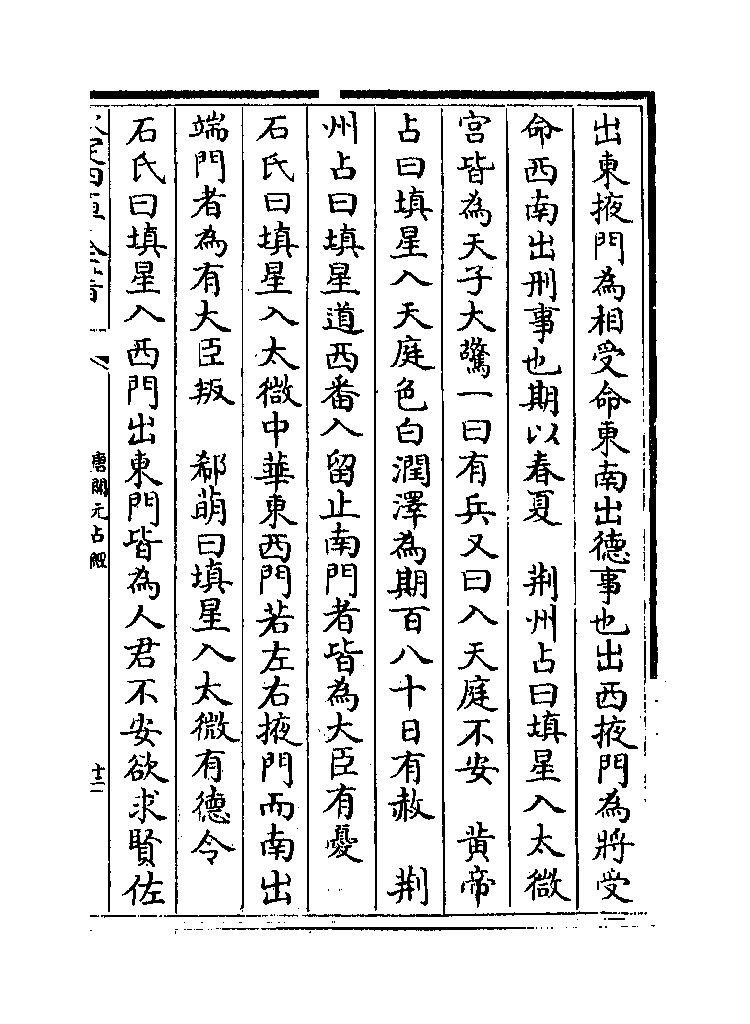 出東掖門為相受命東南出德事也出西掖門為將受
命西南出刑事也期以春夏　荆州占曰填星入太微
宫皆為天子大驚一曰有兵又曰入天庭不安　黄帝
占曰填星入天庭色白潤澤為期百八十日有赦　荆
州占曰填星道西番入留止南門者皆為大臣有憂
石氏曰填星入太微中華東西門若左右掖門而南出
端門者為有大臣叛　郗萌曰填星入太微有德令
石氏曰填星入西門出東門皆為人君不安欲求賢佐
唐開元占經
十二